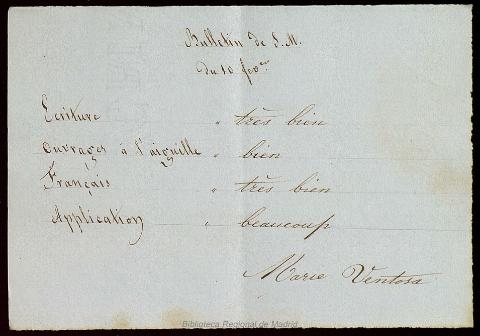 Bulletin de S. M.
du 10 fever
Ecriture " très bien
Ouvrages à l'aiguille " bien
Français " très bien
Application " beaucoup
Marie Ventosa
Biblioteca Regional de Madrid